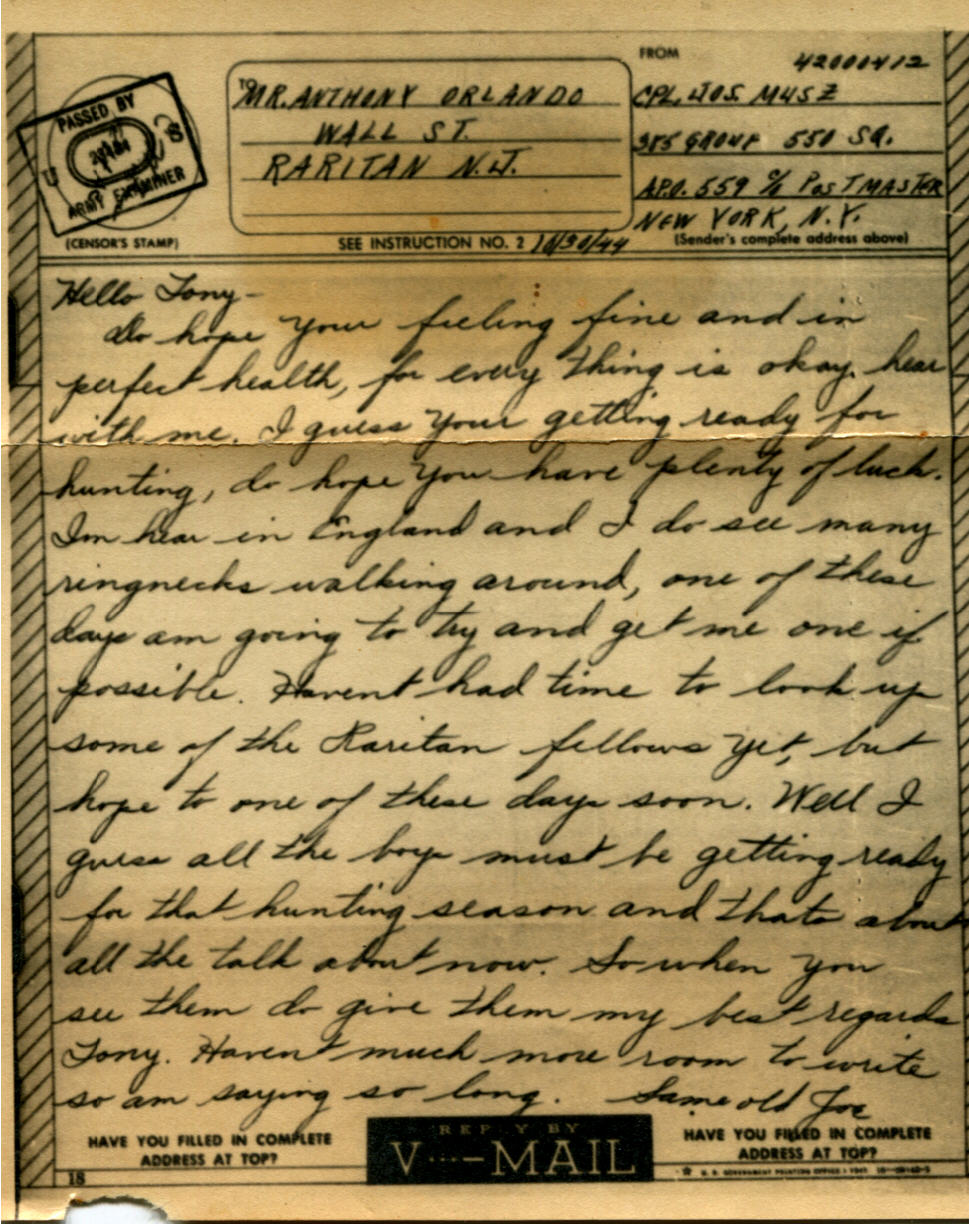 PASSED BY
U S
ARMY EXAMINER
(CENSOR'S STAMP)
TO
MR. ANTHONY ORLANDO
WALL ST.
RARITAN N.J.
SEE INSTRUCTION NO. 2
10/30/44
FROM
42000412
CPL. JOS. MUSZ
385 GROUP 550 SQ.
A.P.O. 559 % POSTMASTER
NEW YORK, N.Y.
(Sender's complete address above)
Hello Tony-
Do hope your feeling fine and in
perfect health, for every thing is okay hear
with me. I guess your getting ready for
hunting, do hope you have plenty of luck.
Im hear in England and I do see many
ringnecks walking around, one of these
days am going to try and get me one if
possible. Havent had time to look up
some of the Raritan fellows yet, but
hope to one of these days soon. Well I
guess all the boys must be getting ready
for that hunting season and thats about
all the talk about now. So when you
see them do give them my best regards
Tony. Havent much more room to write
so am saying so long. Same old Joe
HAVE YOU FILLED IN COMPLETE
ADDRESS AT TOP?
REPLY BY
V···—MAIL
HAVE YOU FILLED IN COMPLETE
ADDRESS AT TOP?
18
☆ U. S. GOVERNMENT PRINTING OFFICE : 1943